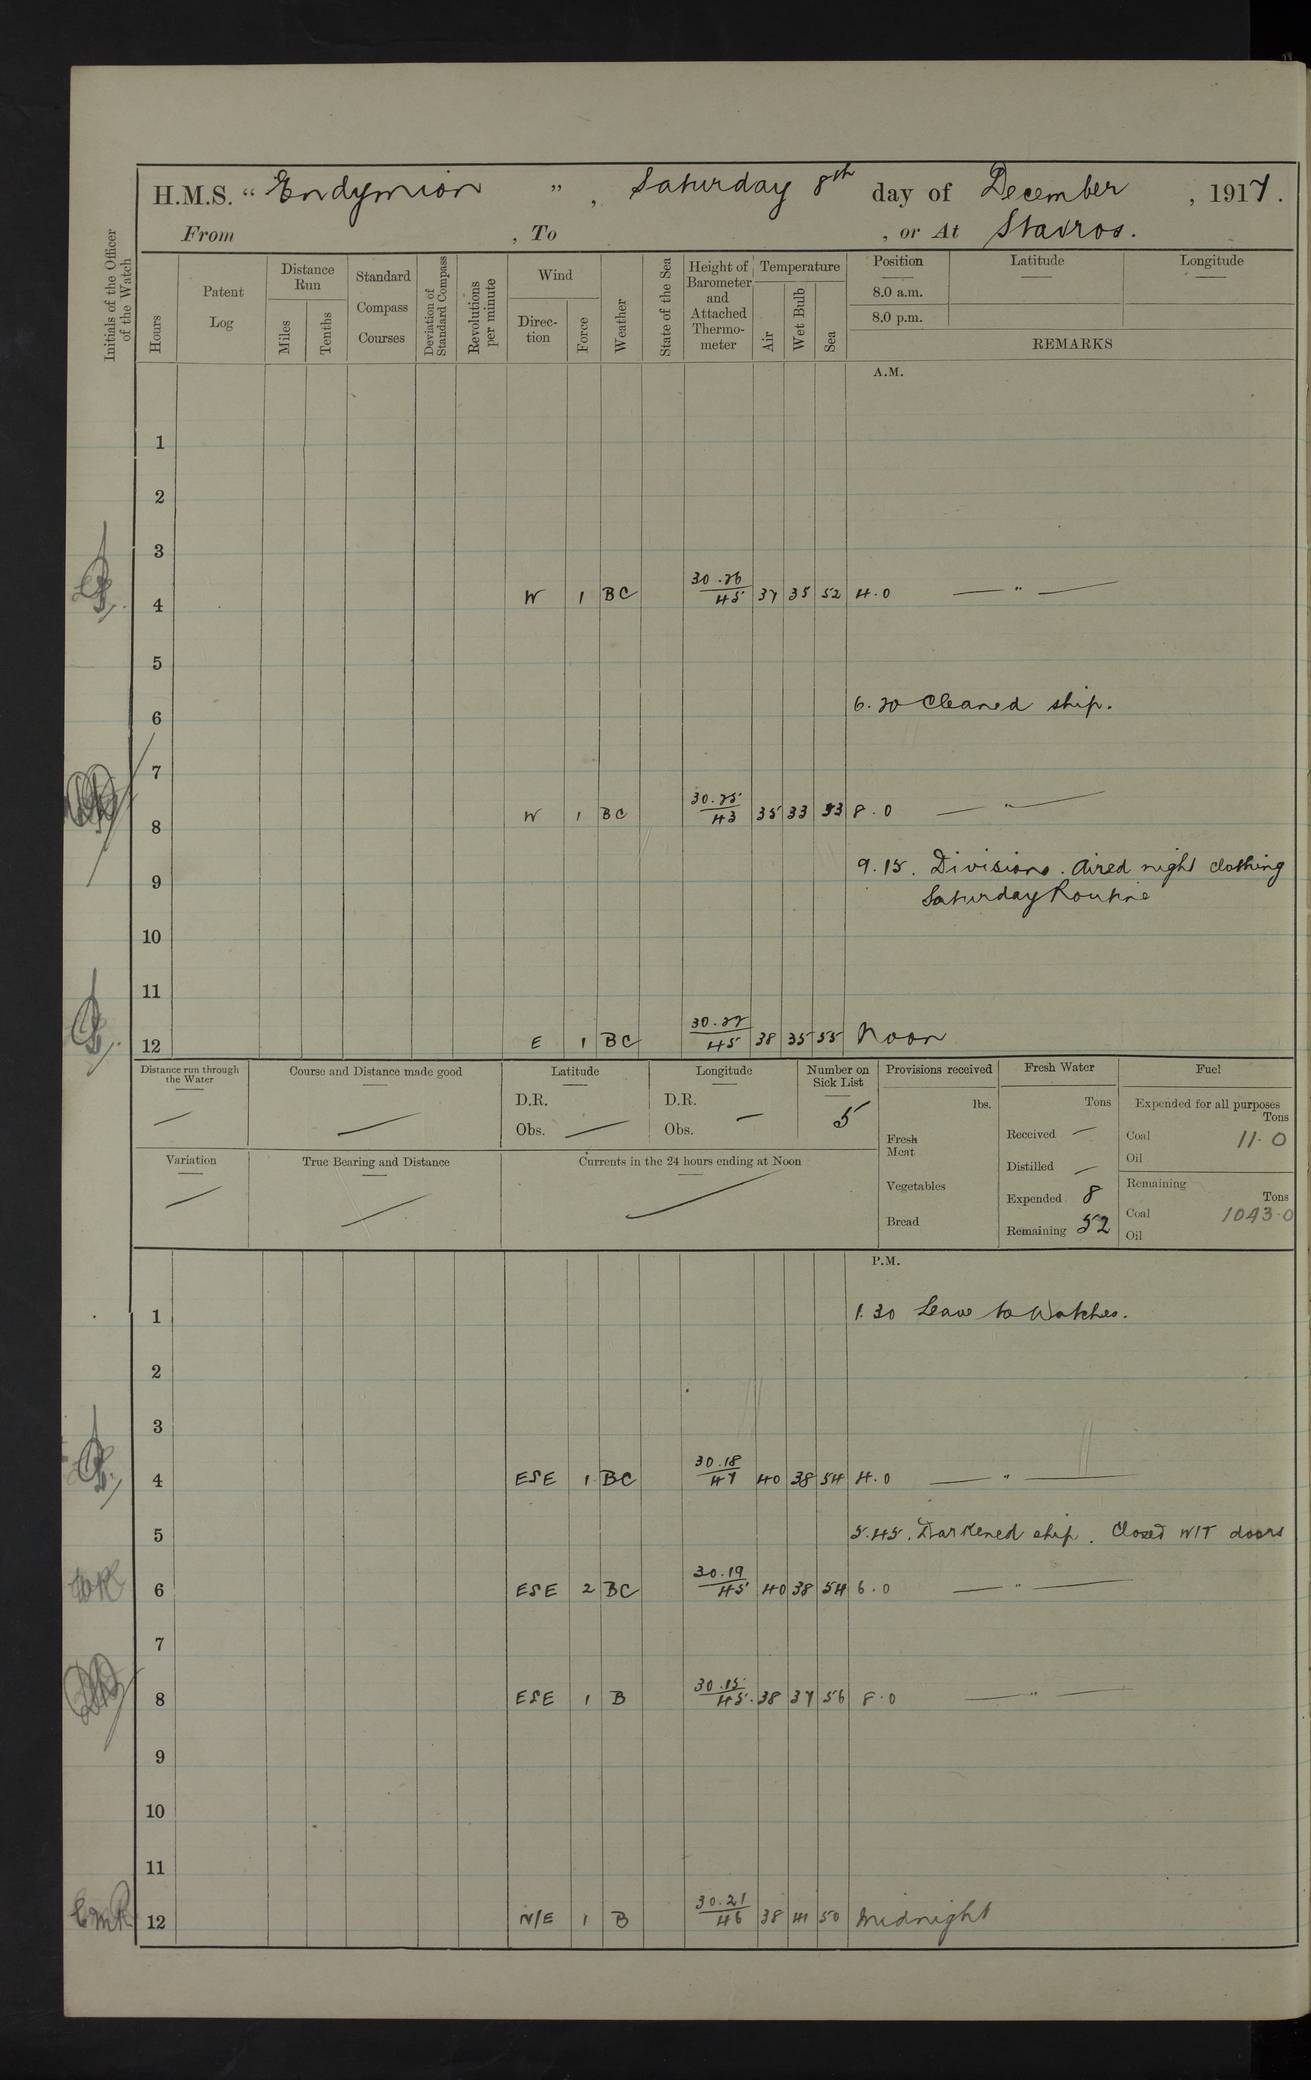 H.M.S. “ Endymion ” , Saturday 8th day of December , 1917 .
From , To , or At Stavros.
Initials of the Officer of the Watch
Hours
Patent Log
Distance Run
Miles
Tenths
Standard Compass Courses
Deviation of Standard Compass
Revolutions per minute
Wind
Direc-tion
Force
Weather
State of the Sea
Height of Barometer and Attached Thermo-meter
Temperature
Air
Wet Bulb
Sea
Position
8.0 a.m.
8.0 p.m.
Latitude
Longitude
REMARKS
A.M.
1
2
3
4 W 1 BC 30.26/45 37 35 52 4.0 — " —
5
6 6.20 Cleaned ship.
7
8 W 1 BC 30.25/43 35 33 53 8.0 — " —
9 9.15. Divisions. Aired night clothing
Saturday Routine
10
11
12 E 1 BC 30.22/45 38 35 55 Noon
Distance run through the Water
—
Course and Distance made good
—
Latitude
D.R.
Obs. —
Longitude
D.R.
Obs. —
Number on Sick List
5
Provisions received
lbs.
Fresh Meat
Vegetables
Bread
Fresh Water
Tons
Received —
Distilled —
Expended 8
Remaining 52
Fuel
Expended for all purposes
Tons
Coal 11.0
Oil
Remaining
Tons
Coal 1043.0
Oil
Variation
—
True Bearing and Distance
—
Currents in the 24 hours ending at Noon
—
P.M.
1 1.30 Leave to Watches.
2
3
4 ESE 1 BC 30.18/47 40 38 54 4.0 — " —
5 5.45. Darkened ship. Closed W/T doors
6 ESE 2 BC 30.19/45 40 38 54 6.0 — " —
7
8 ESE 1 B 30.15/45. 38 37 56 8.0 — " —
9
10
11
12 N/E 1 B 30.21/46 38 41 50 Midnight